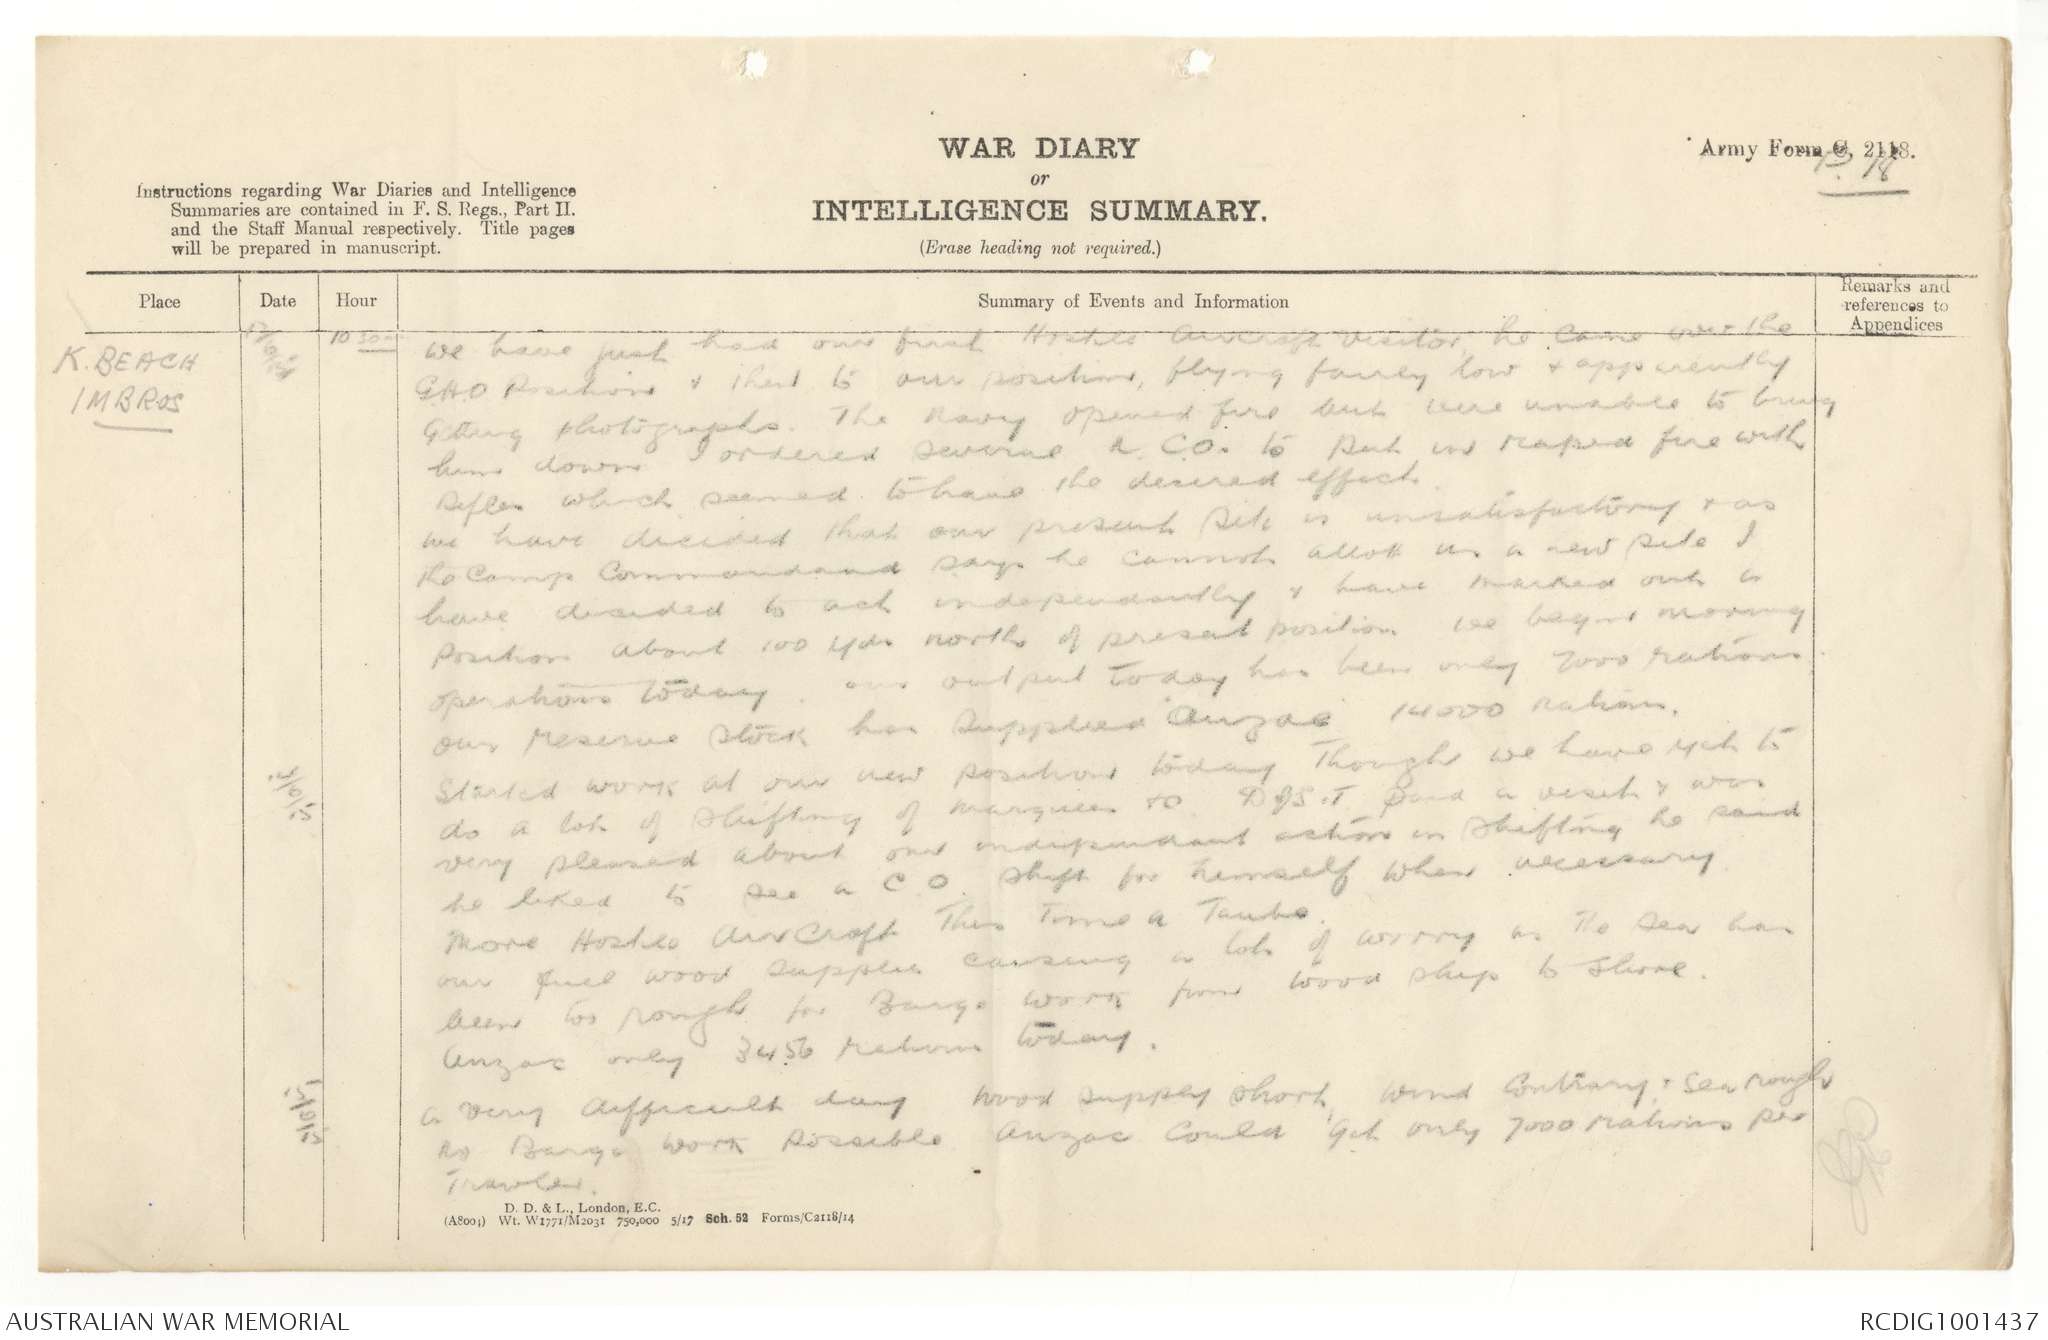 WAR DIARY
or
INTELLIGENCE SUMMARY.
(Erase heading not required.)
Army Form C. 2118.
P. 18
Instructions regarding War Diaries and Intelligence
Summaries are contained in F. S. Regs., Part II.
and the Staff Manual respectively. Title pages
will be prepared in manuscript.
Place
Date
Hour
Summary of Events and Information
Remarks and
references to
Appendices
K. BEACH
IMBROS
10 30
We have just had our first Hostile Aircraft visitor, he came over the
GHQ Position & then to our position, flying fairly low & apparently
getting photographs. The Navy opened fire but were unable to bring
him down I ordered several N.C.Os to put in rapid fire with
Rifles which seemed to have the desired effect.
We have decided that our present site is unsatisfactory & as
the Camp Commandant says he cannot allot us a new site I
have decided to act independently & have marked out a
Position about 100 yds north of present position we begin moving
operations today. our output today has been only 7000 rations
our reserve stock has supplied Anzac 14000 rations.
Started work at our new position today though we have yet to
do a lot of shifting of marquees &c D of S.T. paid a visit & was
very pleased about our independent action in shifting he said
he liked to see a C O shift for himself when necessary.
More Hostile AirCraft This Time a Taube.
our fuel wood supplies causing a lot of worry as the sea has
been too rough for Barge work from wood ship to shore.
Anzac only 3456 rations today.
15/10/15
a very difficult day Wood supply short, Wind Contrary & Sea rough
no Barge work possible Anzac Could get only 7000 rations per
Trawler.
D. D. & L., London, E.C.
(A8004) Wt. W1771/M2031 750,000 5/17 Sch. 52 Forms/C2118/14
AUSTRALIAN WAR MEMORIAL
RCDIG1001437